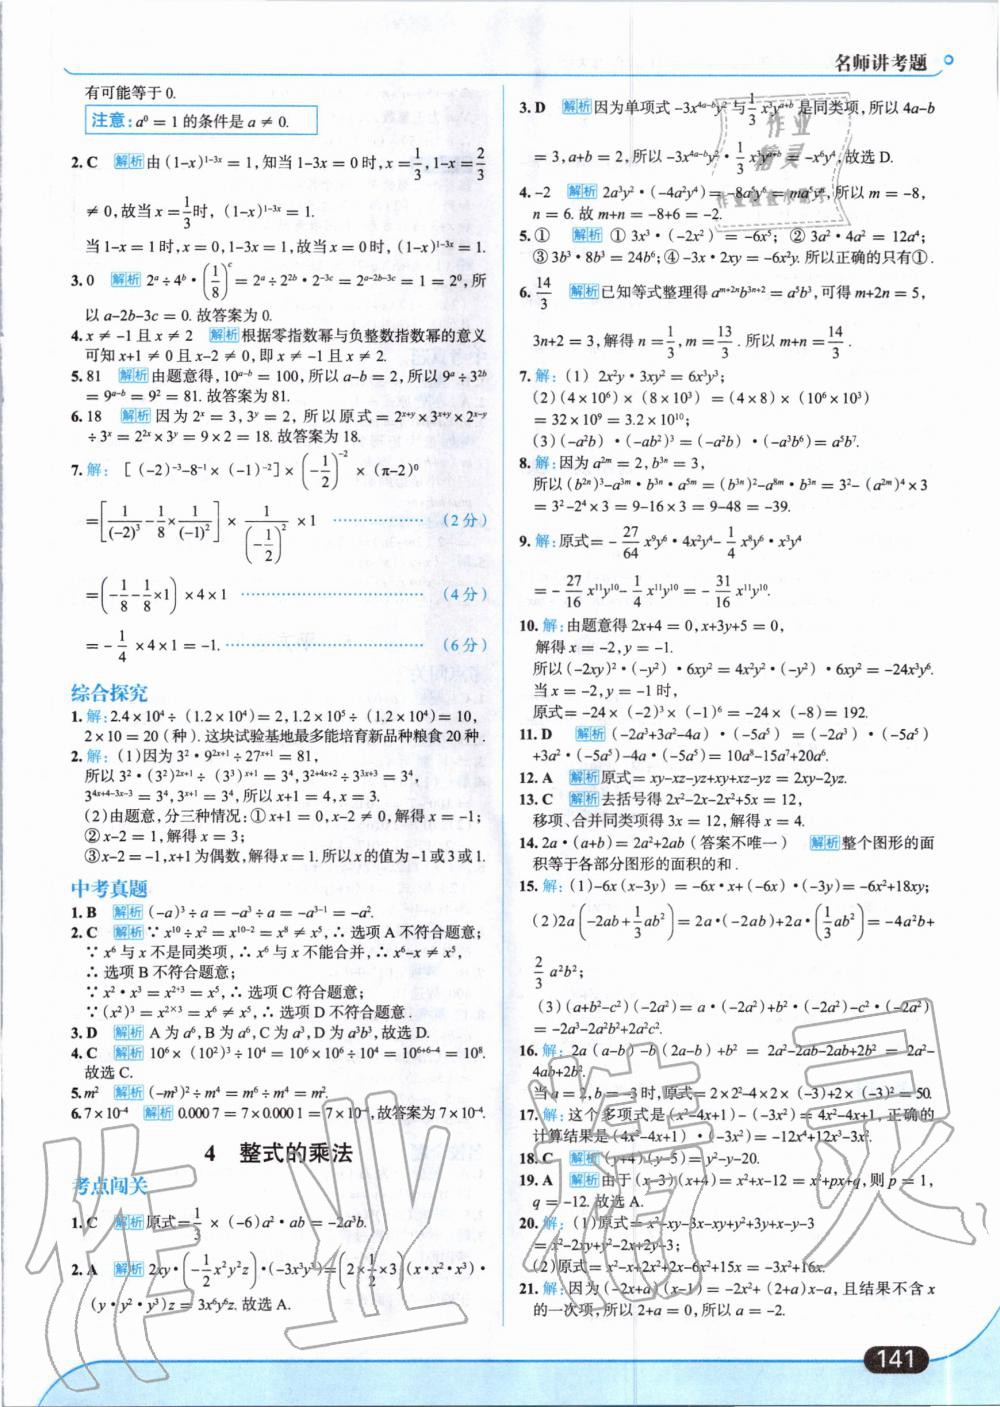 名师讲考题
有可能等于 0.
注意: a⁰ = 1 的条件是 a ≠ 0.
2. C 解析 由 (1-x)¹⁻³ˣ = 1, 知当 1-3x = 0 时, x = 1/3, 1-x = 2/3
≠ 0, 故当 x = 1/3 时, (1-x)¹⁻³ˣ = 1.
当 1-x = 1 时, x = 0, 1-3x = 1, 故当 x = 0 时, (1-x)¹⁻³ˣ = 1.
3. 0 解析 2ᵃ÷4ᵇ·(1/8)ᶜ = 2ᵃ÷2²ᵇ·2⁻³ᶜ = 2ᵃ⁻²ᵇ⁻³ᶜ = 1 = 2⁰, 所
以 a-2b-3c = 0. 故答案为 0.
4. x ≠ -1 且 x ≠ 2 解析 根据零指数幂与负整数指数幂的意义
可知 x+1 ≠ 0 且 x-2 ≠ 0, 即 x ≠ -1 且 x ≠ 2.
5. 81 解析 由题意得, 10ᵃ⁻ᵇ = 100, 所以 a-b = 2, 所以 9ᵃ÷3²ᵇ
= 9ᵃ⁻ᵇ = 9² = 81. 故答案为 81.
6. 18 解析 因为 2ˣ = 3, 3ʸ = 2, 所以原式 = 2ˣ⁺ʸ×3ˣ⁺ʸ×2ˣ⁻ʸ
÷3ˣ = 2²ˣ×3ʸ = 9×2 = 18. 故答案为 18.
7. 解: [(-2)⁻³-8⁻¹×(-1)⁻²]×(-1/2)⁻²×(π-2)⁰
=[1/(-2)³-1/8×1/(-1)²]×1/(-1/2)²×1 ……………… (2 分)
=(-1/8-1/8×1)×4×1 ……………… (4 分)
= -1/4×4×1 = -1. ……………… (6 分)
综合探究
1. 解: 2.4×10⁴÷(1.2×10⁴) = 2, 1.2×10⁵÷(1.2×10⁴) = 10,
2×10 = 20 (种). 这块试验基地最多能培育新品种粮食 20 种.
2. 解: (1)因为 3²·9²ˣ⁺¹÷27ˣ⁺¹ = 81,
所以 3²·(3²)²ˣ⁺¹÷(3³)ˣ⁺¹ = 3⁴, 3²⁺⁴ˣ⁺²÷3³ˣ⁺³ = 3⁴,
3⁴ˣ⁺⁴⁻³ˣ⁻³ = 3⁴, 3ˣ⁺¹ = 3⁴, 所以 x+1 = 4, x = 3.
(2)由题意, 分三种情况: ① x+1 = 0, x-2 ≠ 0, 解得 x = -1;
② x-2 = 1, 解得 x = 3;
③ x-2 = -1, x+1 为偶数, 解得 x = 1. 所以 x 的值为 -1 或 3 或 1.
中考真题
1. B 解析 (-a)³÷a = -a³÷a = -a³⁻¹ = -a².
2. C 解析 ∵ x¹⁰÷x² = x¹⁰⁻² = x⁸ ≠ x⁵, ∴ 选项 A 不符合题意;
∵ x⁶ 与 x 不是同类项, ∴ x⁶ 与 x 不能合并, ∴ x⁶-x ≠ x⁵,
∴ 选项 B 不符合题意;
∵ x²·x³ = x²⁺³ = x⁵, ∴ 选项 C 符合题意;
∵ (x²)³ = x²ˣ³ = x⁶ ≠ x⁵, ∴ 选项 D 不符合题意.
3. D 解析 A 为 a⁶, B 为 a⁶, C 为 a³, D 为 a³b³, 故选 D.
4. C 解析 10⁶×(10²)³÷10⁴ = 10⁶×10⁶÷10⁴ = 10⁶⁺⁶⁻⁴ = 10⁸.
故选 C.
5. m² 解析 (-m³)²÷m⁴ = m⁶÷m⁴ = m².
6. 7×10⁻⁴ 解析 0.000 7 = 7×0.000 1 = 7×10⁻⁴, 故答案为 7×10⁻⁴.
4 整式的乘法
考点闯关
1. C 解析 原式 = 1/3×(-6)a²·ab = -2a³b.
2. A 解析 2xy·(-1/2x²y²z)·(-3x³y³) = (2×1/2×3)(x·x²·x³)·
(y·y²·y³)z = 3x⁶y⁶z. 故选 A.
3. D 解析 因为单项式 -3x⁴ᵃ⁻ᵇy² 与 1/3x³yᵃ⁺ᵇ 是同类项, 所以 4a-b
= 3, a+b = 2, 所以 -3x⁴ᵃ⁻ᵇy²·1/3x³yᵃ⁺ᵇ = -x⁶y⁴, 故选 D.
4. -2 解析 2a³y²·(-4a²y⁴) = -8a⁵y⁶ = ma⁵yⁿ, 所以 m = -8,
n = 6. 故 m+n = -8+6 = -2.
5. ① 解析 ① 3x³·(-2x²) = -6x⁵; ② 3a²·4a² = 12a⁴;
③ 3b³·8b³ = 24b⁶; ④ -3x·2xy = -6x²y. 所以正确的只有①.
6. 14/3 解析 已知等式整理得 aᵐ⁺²ⁿb³ⁿ⁺² = a⁵b³, 可得 m+2n = 5,
3n+2 = 3, 解得 n = 1/3, m = 13/3. 所以 m+n = 14/3.
7. 解: (1) 2x²y·3xy² = 6x³y³;
(2)(4×10⁶)×(8×10³) = (4×8)×(10⁶×10³)
= 32×10⁹ = 3.2×10¹⁰;
(3)(-a²b)·(-ab²)³ = (-a²b)·(-a³b⁶) = a⁵b⁷.
8. 解: 因为 a²ᵐ = 2, b³ⁿ = 3,
所以 (b²ⁿ)³-a³ᵐ·b³ⁿ·a⁵ᵐ = (b³ⁿ)²-a⁸ᵐ·b³ⁿ = 3²-(a²ᵐ)⁴×3
= 3²-2⁴×3 = 9-16×3 = 9-48 = -39.
9. 解: 原式 = -27/64x⁹y⁶·4x²y⁴-1/4x⁸y⁶·x³y⁴
= -27/16x¹¹y¹⁰-1/4x¹¹y¹⁰ = -31/16x¹¹y¹⁰.
10. 解: 由题意得 2x+4 = 0, x+3y+5 = 0,
解得 x = -2, y = -1.
所以 (-2xy)²·(-y²)·6xy² = 4x²y²·(-y²)·6xy² = -24x³y⁶.
当 x = -2, y = -1 时,
原式 = -24×(-2)³×(-1)⁶ = -24×(-8) = 192.
11. D 解析 (-2a³+3a²-4a)·(-5a⁵) = (-2a³)·(-5a⁵)
+3a²·(-5a⁵)-4a·(-5a⁵) = 10a⁸-15a⁷+20a⁶.
12. A 解析 原式 = xy-xz-yz+xy+xz-yz = 2xy-2yz.
13. C 解析 去括号得 2x²-2x-2x²+5x = 12,
移项、合并同类项得 3x = 12, 解得 x = 4.
14. 2a·(a+b) = 2a²+2ab (答案不唯一) 解析 整个图形的面
积等于各部分图形的面积的和.
15. 解: (1)-6x(x-3y) = -6x·x+(-6x)·(-3y) = -6x²+18xy;
(2)2a(-2ab+1/3ab²) = 2a·(-2ab)+2a·(1/3ab²) = -4a²b+
2/3a²b²;
(3)(a+b²-c²)(-2a²) = a·(-2a²)+b²·(-2a²)-c²·(-2a²)
= -2a³-2a²b²+2a²c².
16. 解: 2a(a-b)-b(2a-b)+b² = 2a²-2ab-2ab+2b² = 2a²-
4ab+2b².
当 a = 2, b = -3 时, 原式 = 2×2²-4×2×(-3)+2×(-3)² = 50.
17. 解: 这个多项式是 (x²-4x+1)-(-3x²) = 4x²-4x+1, 正确的
计算结果是 (4x²-4x+1)·(-3x²) = -12x⁴+12x³-3x².
18. C 解析 (y+4)(y-5) = y²-y-20.
19. A 解析 由于 (x-3)(x+4) = x²+x-12 = x²+px+q, 则 p = 1,
q = -12. 故选 A.
20. 解: (1)原式 = x²-xy-3x-xy+y²+3y+x-y-3
= x²-2xy+y²-2x+2y-3;
(2)原式 = x²-x+2x²+2x-6x²+15x = -3x²+16x.
21. 解: 因为 (-2x+a)(x-1) = -2x²+(2+a)x-a, 且结果不含 x
的一次项, 所以 2+a = 0, 所以 a = -2.
141
作业精灵
作业
精灵